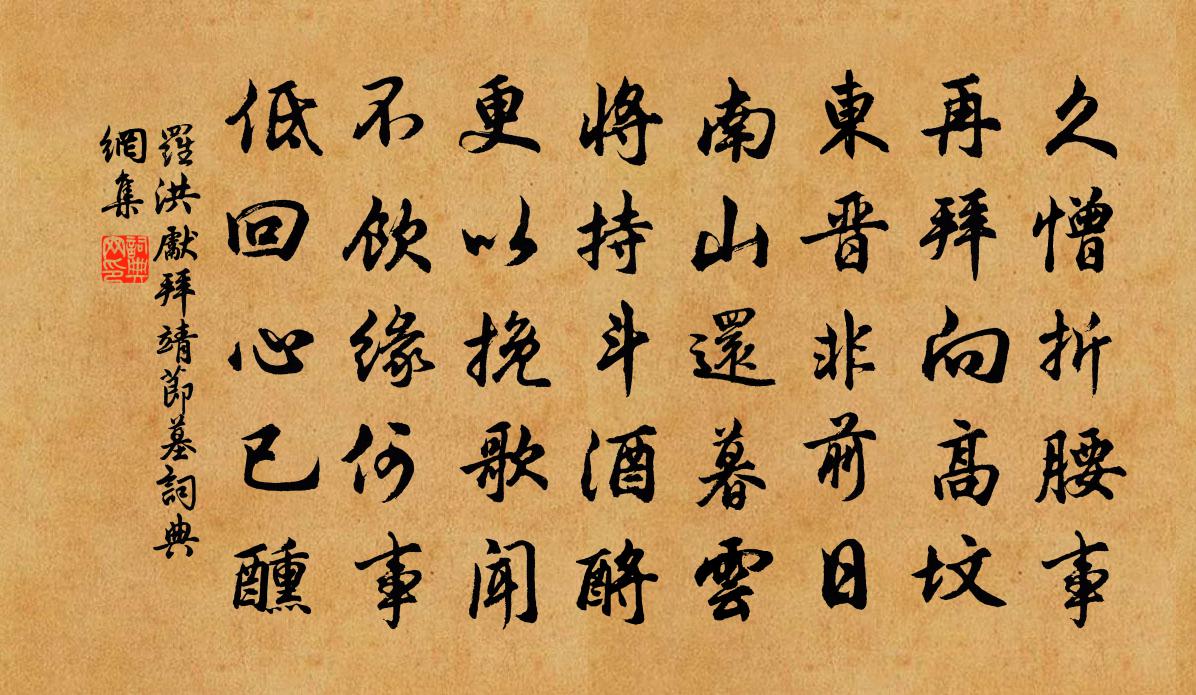 久憎折腰事
再拜向高坟
東晋非前日
南山還暮雲
将持斗酒酹
更以挽歌聞
不飲緣何事
低回心已醺
羅洪獻拜靖節墓詞典
網集
詞典
网印